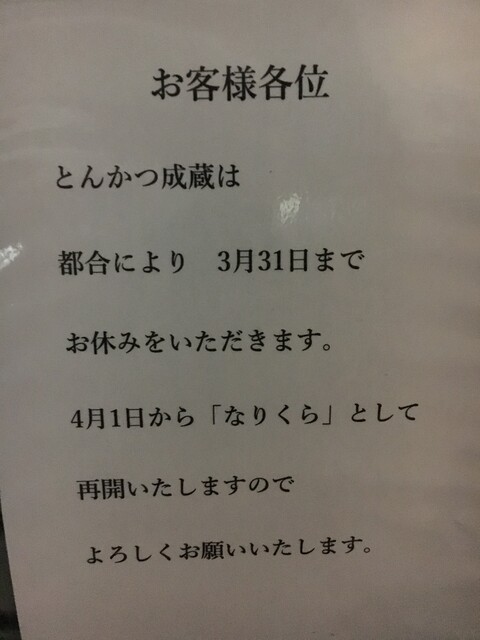 お客様各位
とんかつ成蔵は
都合により　3月31日まで
お休みをいただきます。
4月1日から「なりくら」として
再開いたしますので
よろしくお願いいたします。